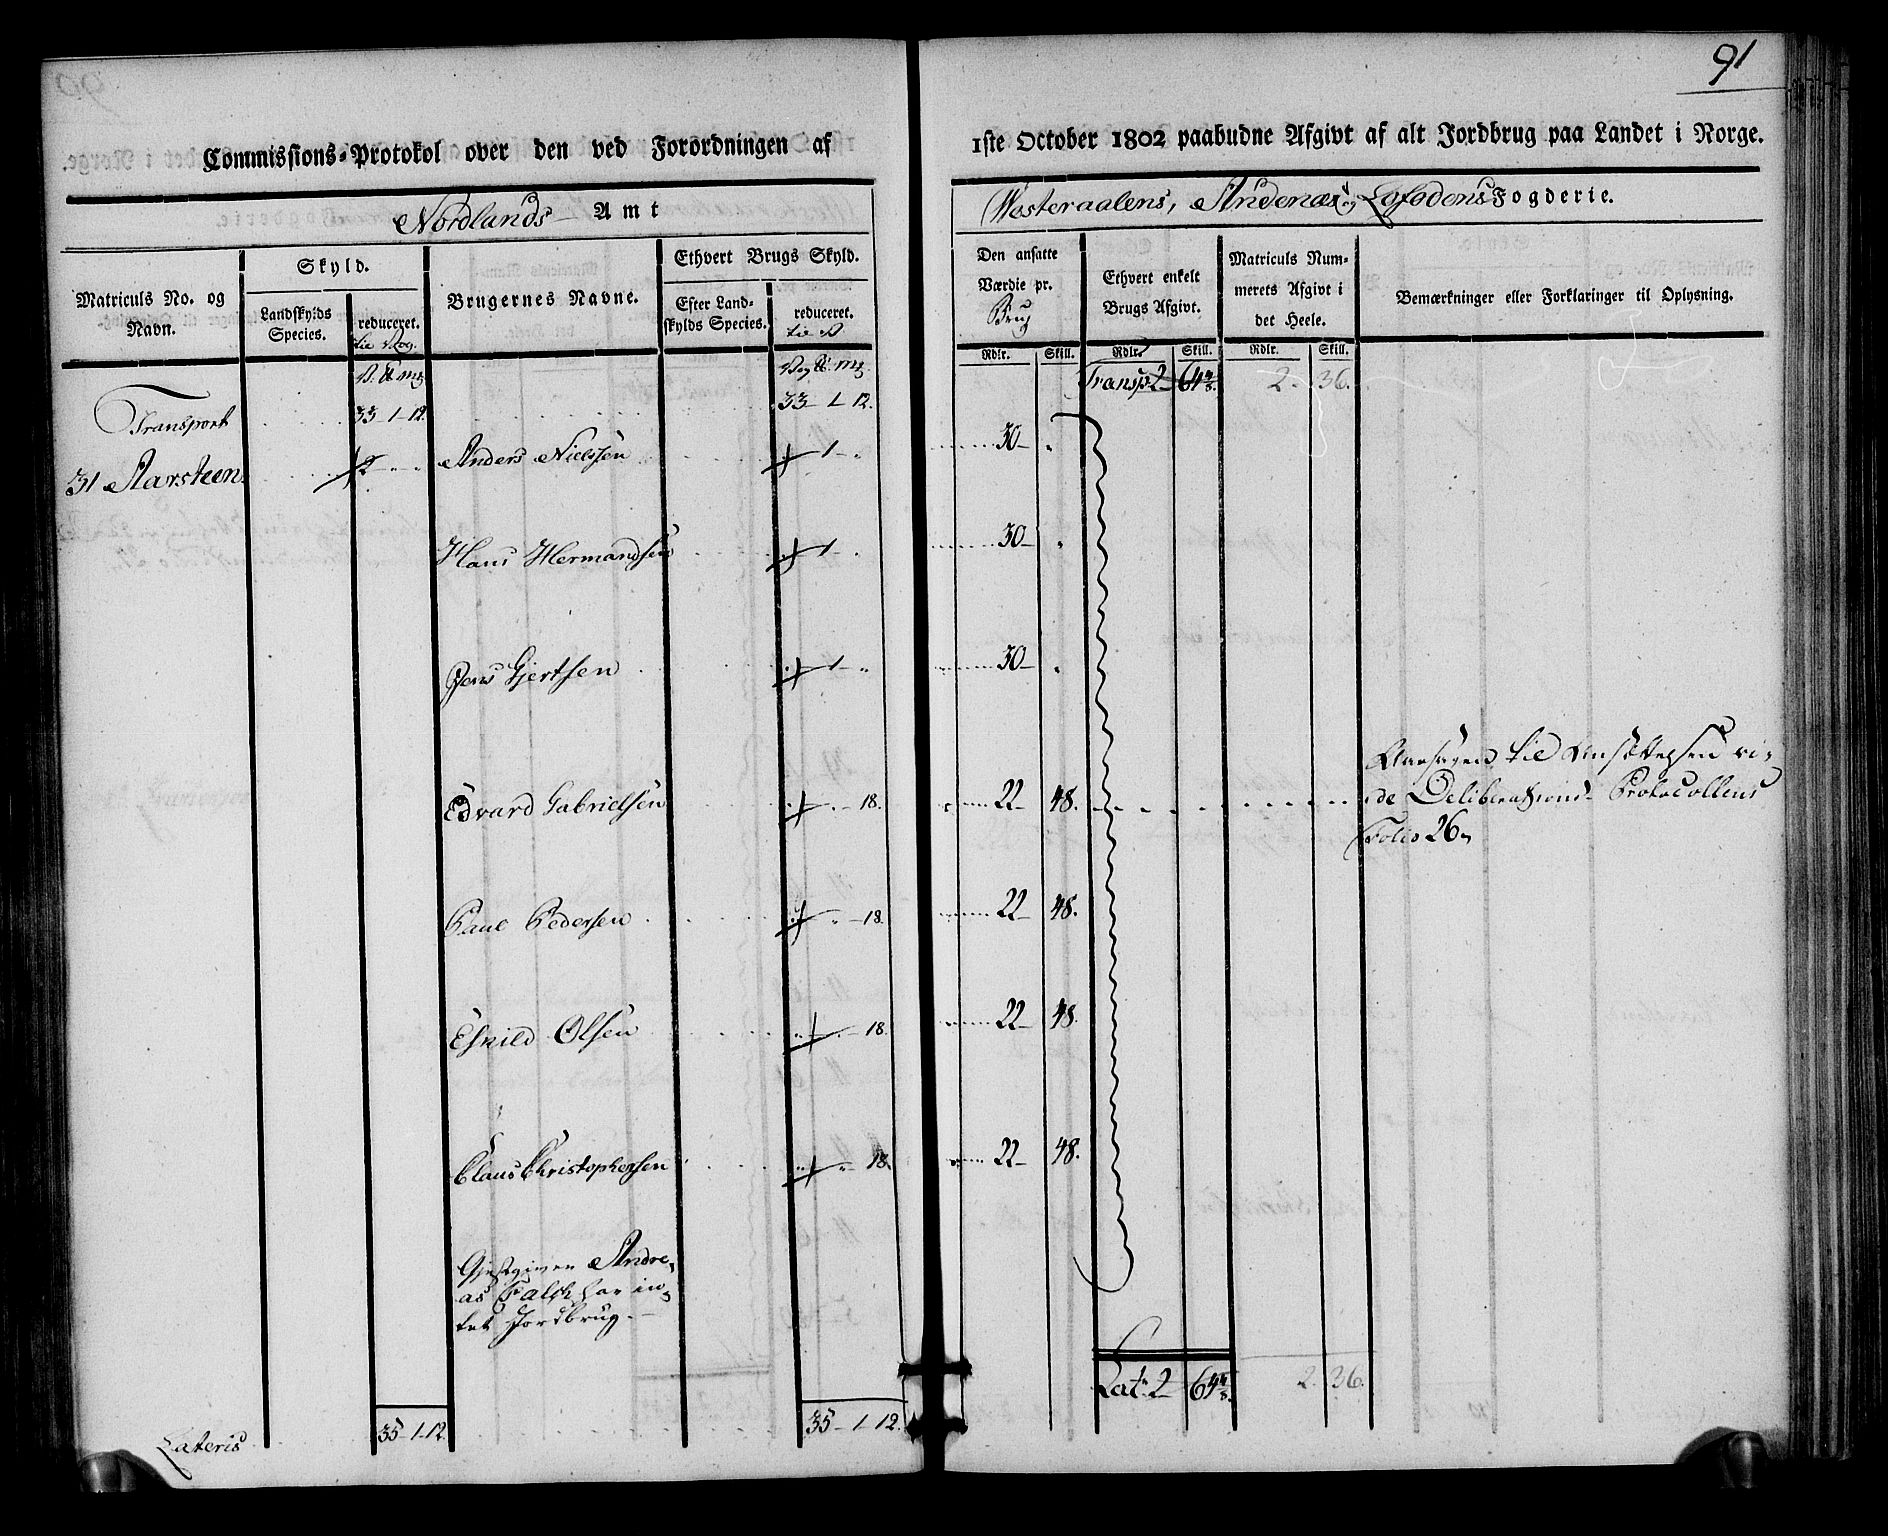 91
Commissions-Protokol over den ved Forordningen af 1ste October 1802 paabudne Afgivt af alt Jordbrug paa Landet i Norge.
Nordlands Amt
Westeraalens, Andenæs og Lofodens Fogderie.
Matriculs No. og Navn.
Skyld.
Landskylds Species.
reduceret. tie Rog.
Brugernes Navne.
Ethvert Brugs Skyld.
Efter Landskylds Species.
reduceret.
Den ansatte Værdie pr. Brug
Ethvert enkelt Brugs Afgivt.
Matriculs Nummerets Afgivt i det Heele.
Bemærkninger eller Forklaringer til Oplysning.
Rdlr. Skill. Rdlr. Skill. Rdlr. Skill.
Transport 33 - 1 - 12. 33 - 1 - 12. Transp. 2 64 4/5. 2. 36.
31 Aarsteen 2 " " Anders Nielssen 1 - " 30 - "
Hans Hermandsen 1 - " 30 - "
Jens Gjertsen 1 - " 30 - "
Edvard Gabrielsen " - 18. 22 - 48. Aarsagen til Ansættelsen vi-
de Deliberations-Protocollens
Folio 26
Paul Pedersen " - 18. 22 - 48.
Esnild Olsen " - 18. 22 - 48.
Claus Christophersen " - 18. 22 - 48.
Gjestgiver Andre-
as Falch har in-
tet Jordbrug. -
Lateris 35 - 1 - 12. 35 - 1 - 12. Lat. 2 64 4/5. 2. 36.